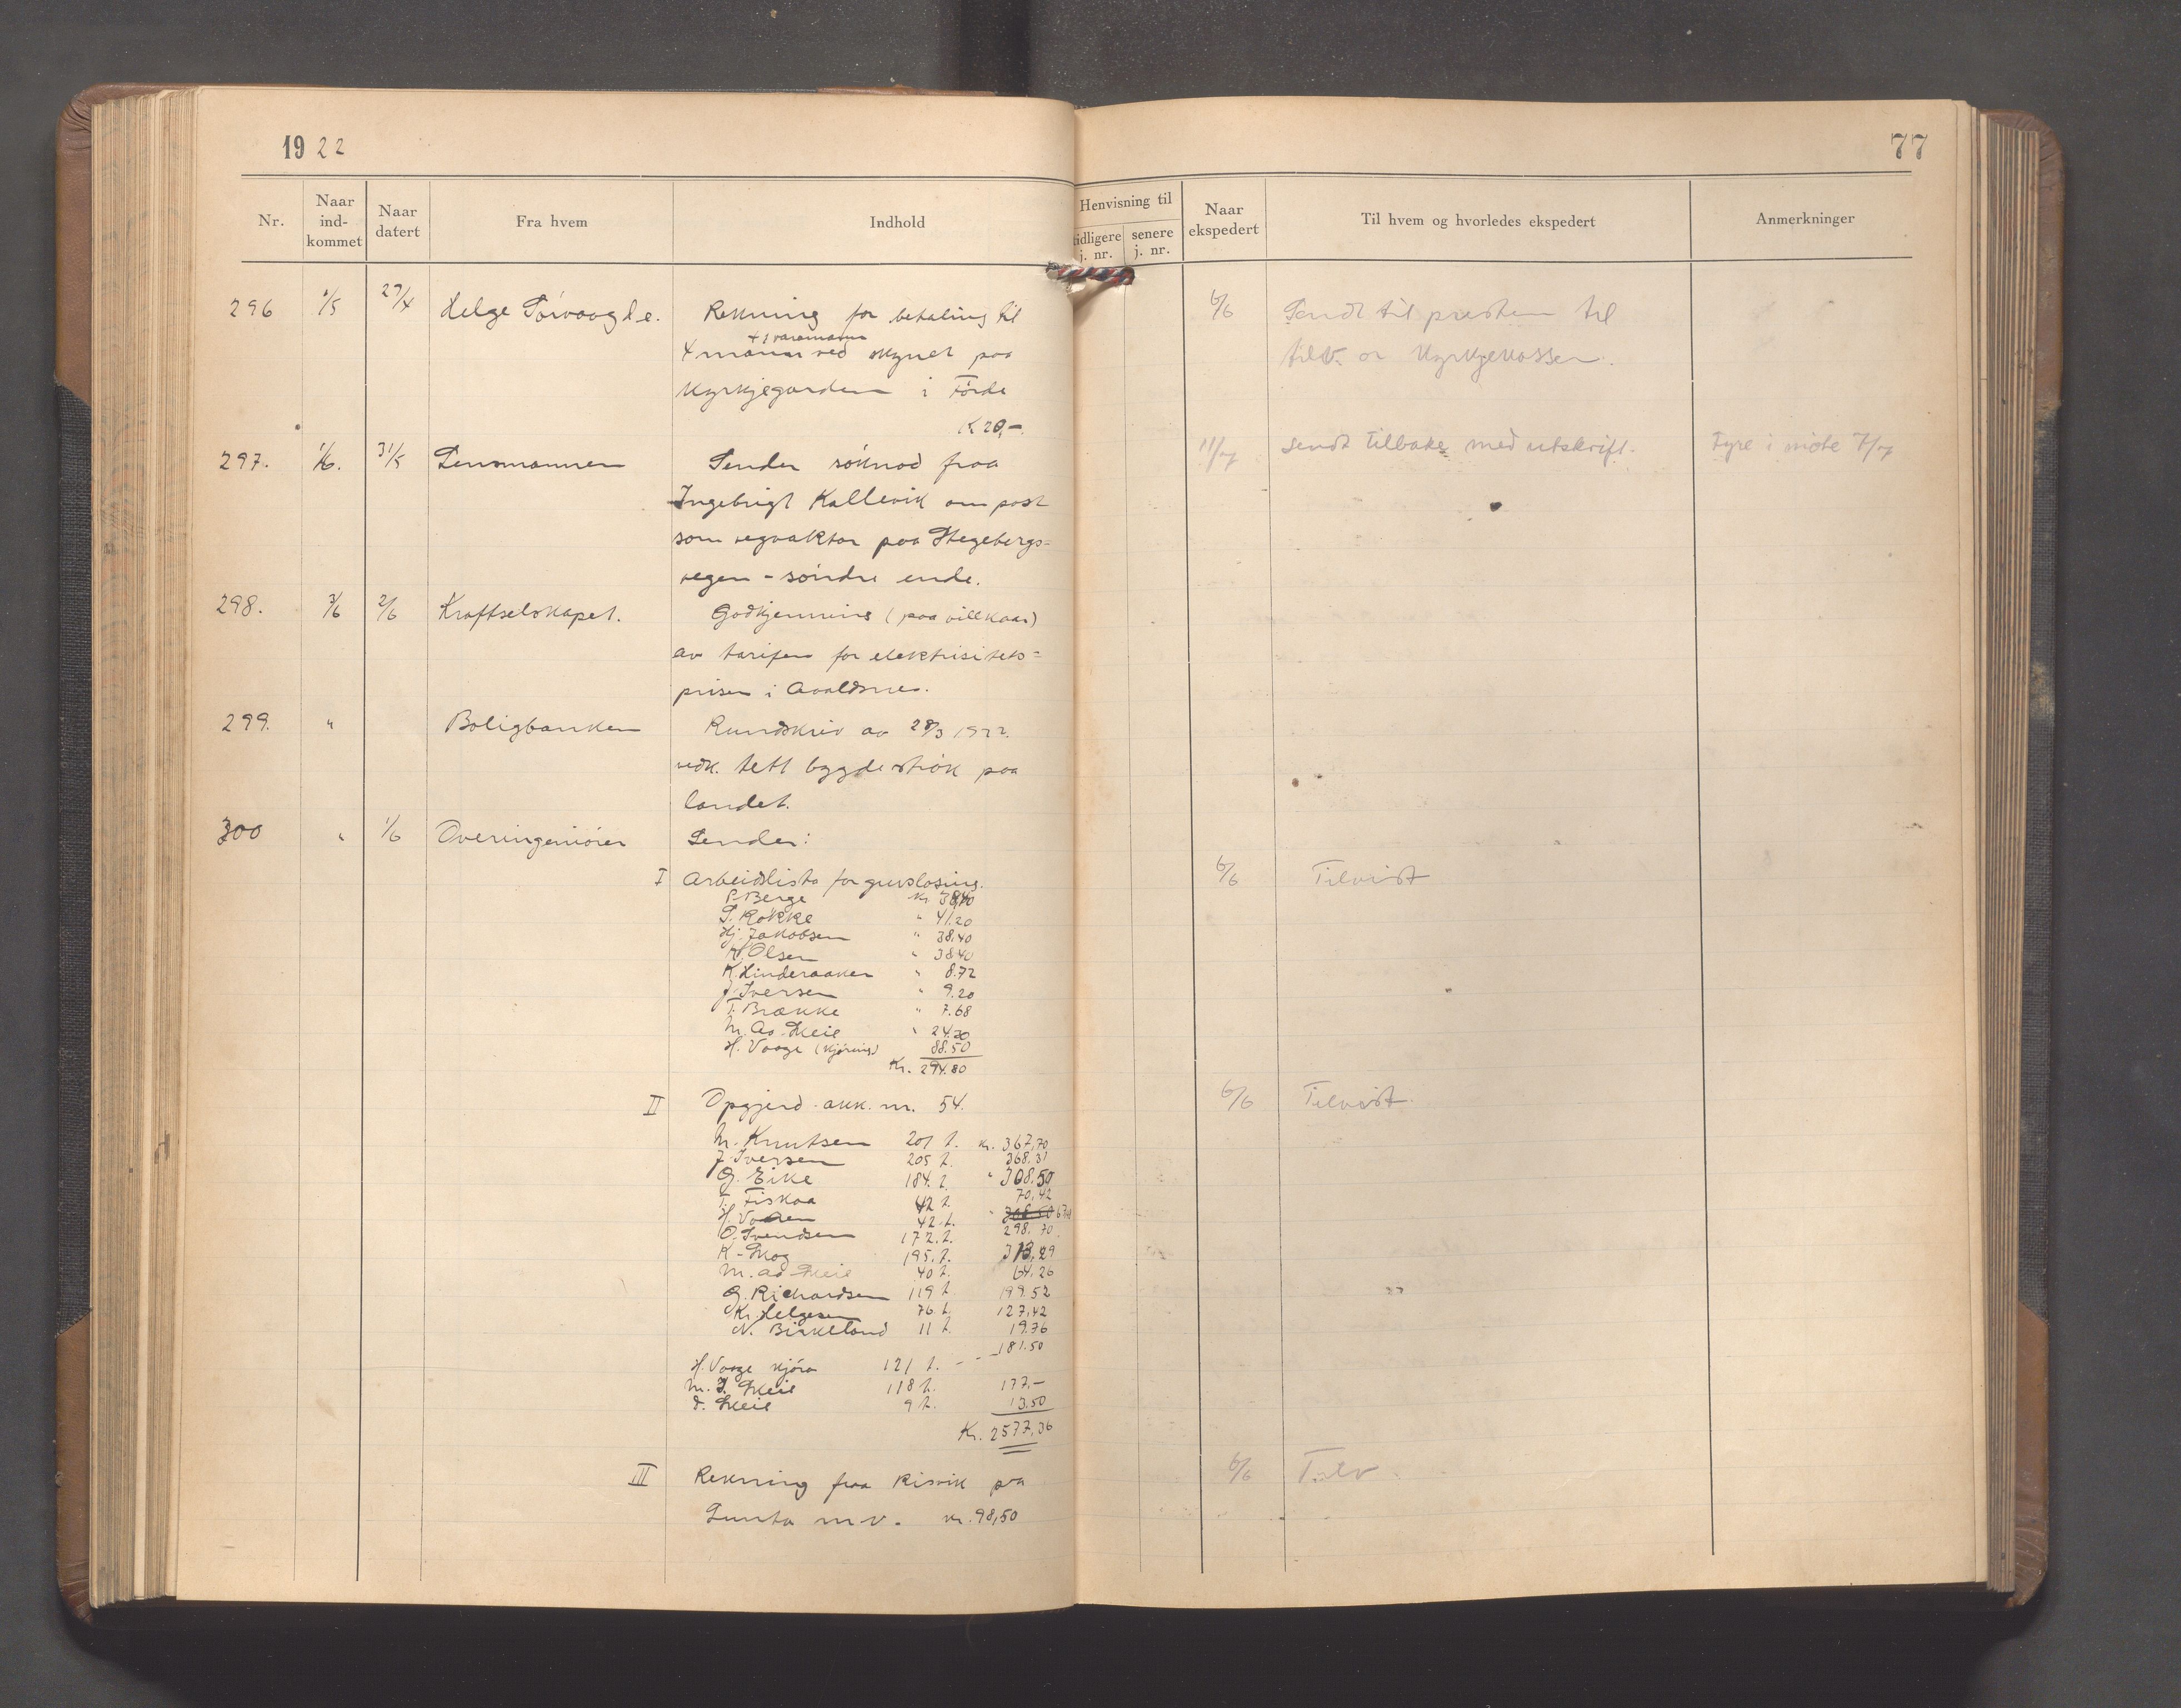 1922
77
Nr.
Naar ind-kommet
Naar datert
Fra hvem
Indhold
Henvisning til
tidligere j. nr.
senere j. nr.
Naar ekspedert
Til hvem og hvorledes ekspedert
Anmerkninger
296 1/5 29/4 Helge Førvaag Rekning for betaling til 6/6 Sendt til presten til
+ 1 varamann
4 mann ved skynet paa tilv. or Kyrkjekassen.
Kyrkjegarden i Förde
K 20,-
297. 1/6. 31/5 Lensmannen Sender söknad fraa 11/7 sendt tilbake med utskrift. Fyre i möte 7/7
Ingebrigt Kallevik om post
som vegvaktar paa Stegebergs=
vegen - söndre ende.
298. 3/6 2/6 Kraftselskapet. Godkjenning (paa villkaar)
av tarifen for elektrisitets=
prisen i Avaldsnes.
299. " Boligbanken Rundskriv av 28/3 1922.
vedk. tett bygde strök paa
landet.
300 " 1/6 Overingeniören Sender:
I Arbeidslista for gruslasing. 6/6 Tilvist
S. Berge Kr. 38,40
S. Kökke " 41.20
Hj. Jakobsen " 38.40
K. Olsen " 38.40
K. Hinderaaker " 8.72
J. Iversen " 9.20
T. Brække " 7.68
M. As. Skeie " 24.20
H. Vaage (Kjöring) 88.50
Kr. 294.80
II Opgjerd akk. nr. 54. 6/6 Tilvist.
M. Knutsen 201 t. Kr. 367,70
J. Iversen 205 t. 368.31
G. Eike 184. t. " 308.50
T. Fiskaa 42 t. 70,42
H. 42 t. "
O. Svendsen 172. t. 298.70
K. Skog 195. t. 313,29
M. As Skeie 40 t. 64.26
G. Richardsen 119 t. 199.52
Kr. Helgesen 76 t. 127,42
N. Birkeland 11 t. 19.76
H. Vaage kjöra 121 t. - - 181.50
M. J. Skeie 118 t. 177,-
D. Skeie 9 t. 13.50
Kr. 2577,36
III Rekning fraa Risvik paa 6/6 Tilv
Lunta m v. Kr. 98,50